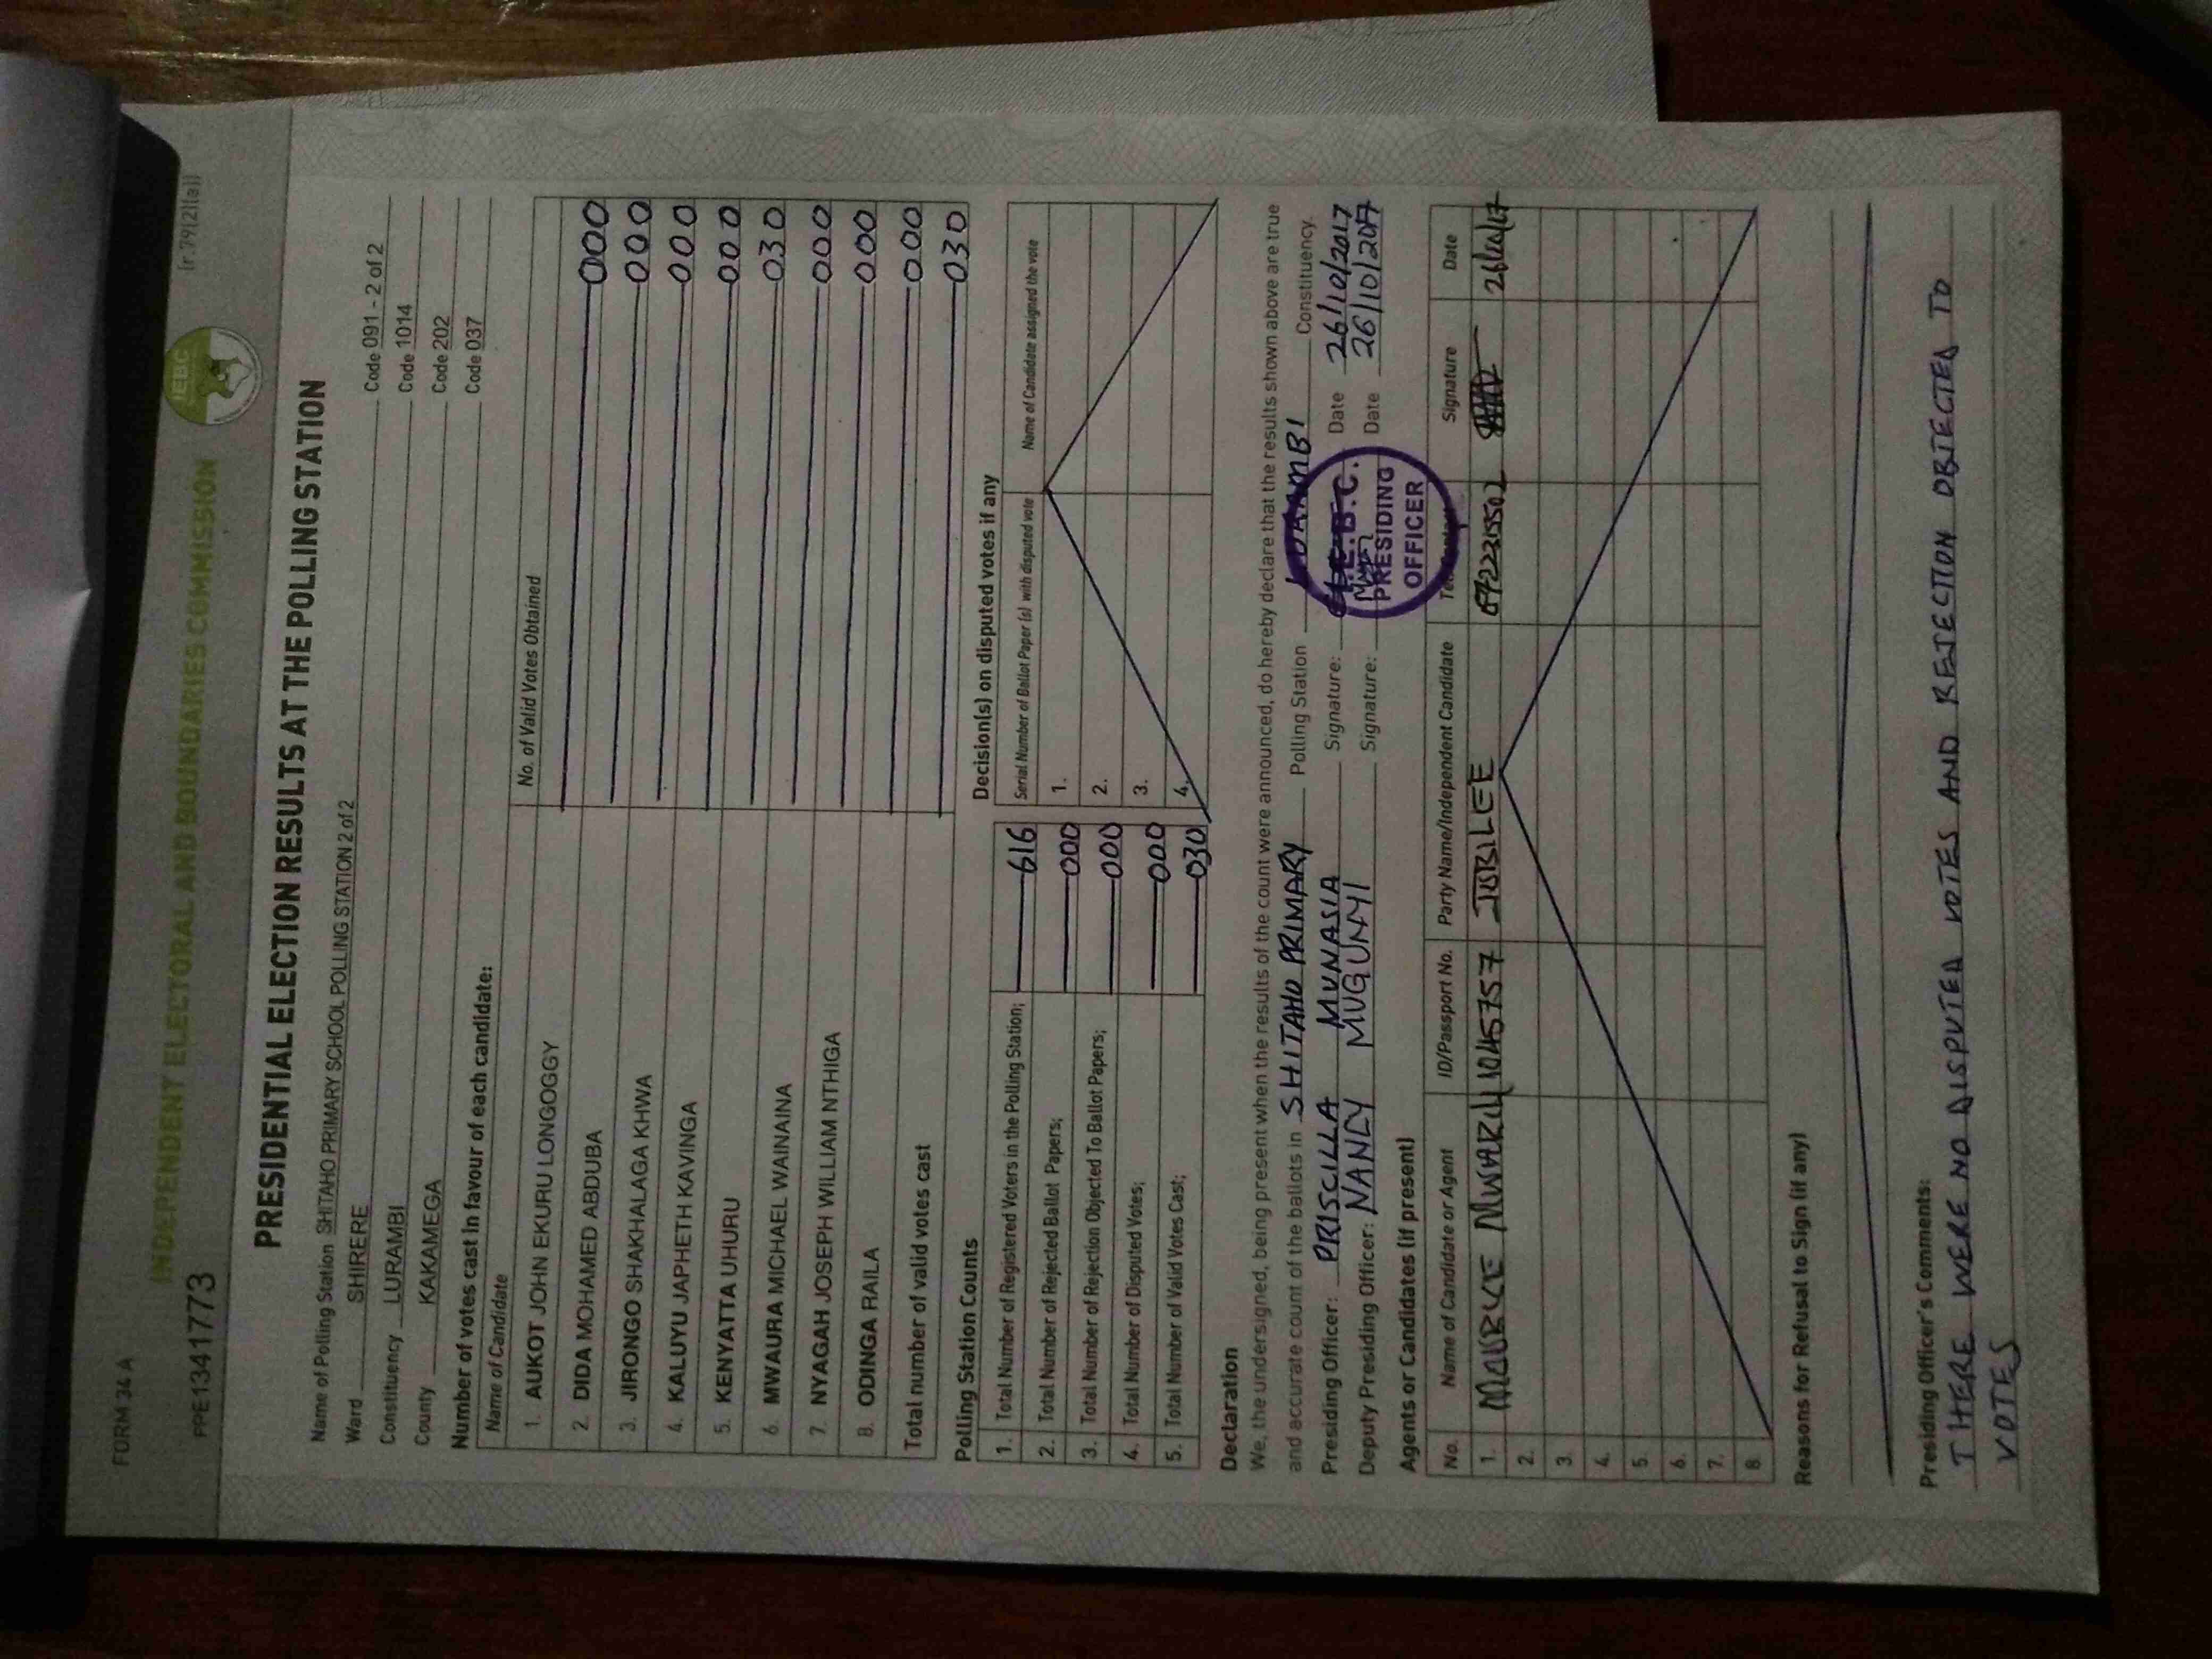 FORM 34 A
[r 79(2)(a)]
INDEPENDENT ELECTORAL AND BOUNDARIES COMMISSION
IEBC
PPE1341773
PRESIDENTIAL ELECTION RESULTS AT THE POLLING STATION
Name of Polling Station SHITAHO PRIMARY SCHOOL POLLING STATION 2 of 2 Code 091 - 2 of 2
Ward SHIRERE Code 1014
Constituency LURAMBI Code 202
County KAKAMEGA Code 037
Number of votes cast in favour of each candidate:
Name of Candidate No. of Valid Votes Obtained
1. AUKOT JOHN EKURU LONGOGGY 000
2. DIDA MOHAMED ABDUBA 000
3. JIRONGO SHAKHALAGA KHWA 000
4. KALUYU JAPHETH KAVINGA 000
5. KENYATTA UHURU 030
6. MWAURA MICHAEL WAINAINA 000
7. NYAGAH JOSEPH WILLIAM NTHIGA 000
8. ODINGA RAILA 000
Total number of valid votes cast 030
Polling Station Counts
1. Total Number of Registered Voters in the Polling Station; 616
2. Total Number of Rejected Ballot Papers; 000
3. Total Number of Rejection Objected To Ballot Papers; 000
4. Total Number of Disputed Votes; 000
5. Total Number of Valid Votes Cast; 030
Decision(s) on disputed votes if any
Serial Number of Ballot Paper (s) with disputed vote Name of Candidate assigned the vote
1.
2.
3.
4.
Declaration
We, the undersigned, being present when the results of the count were announced, do hereby declare that the results shown above are true
and accurate count of the ballots in SHITAHO PRIMARY Polling Station LURAMBI Constituency.
Presiding Officer: PRISCILLA MUNASIA Signature: Date 26/10/2017
Deputy Presiding Officer: NANCY MUGUNYI Signature: Date 26/10/2017
I.E.B.C.
PRESIDING
OFFICER
Agents or Candidates (if present)
No. Name of Candidate or Agent ID/Passport No. Party Name/Independent Candidate Signature Date
1. MAURICE 26/10/17
2.
3.
4.
5.
6.
7.
8.
Reasons for Refusal to Sign (if any)
Presiding Officer's Comments:
THERE WERE NO DISPUTED VOTES AND REJECTION OBJECTED TO
VOTES